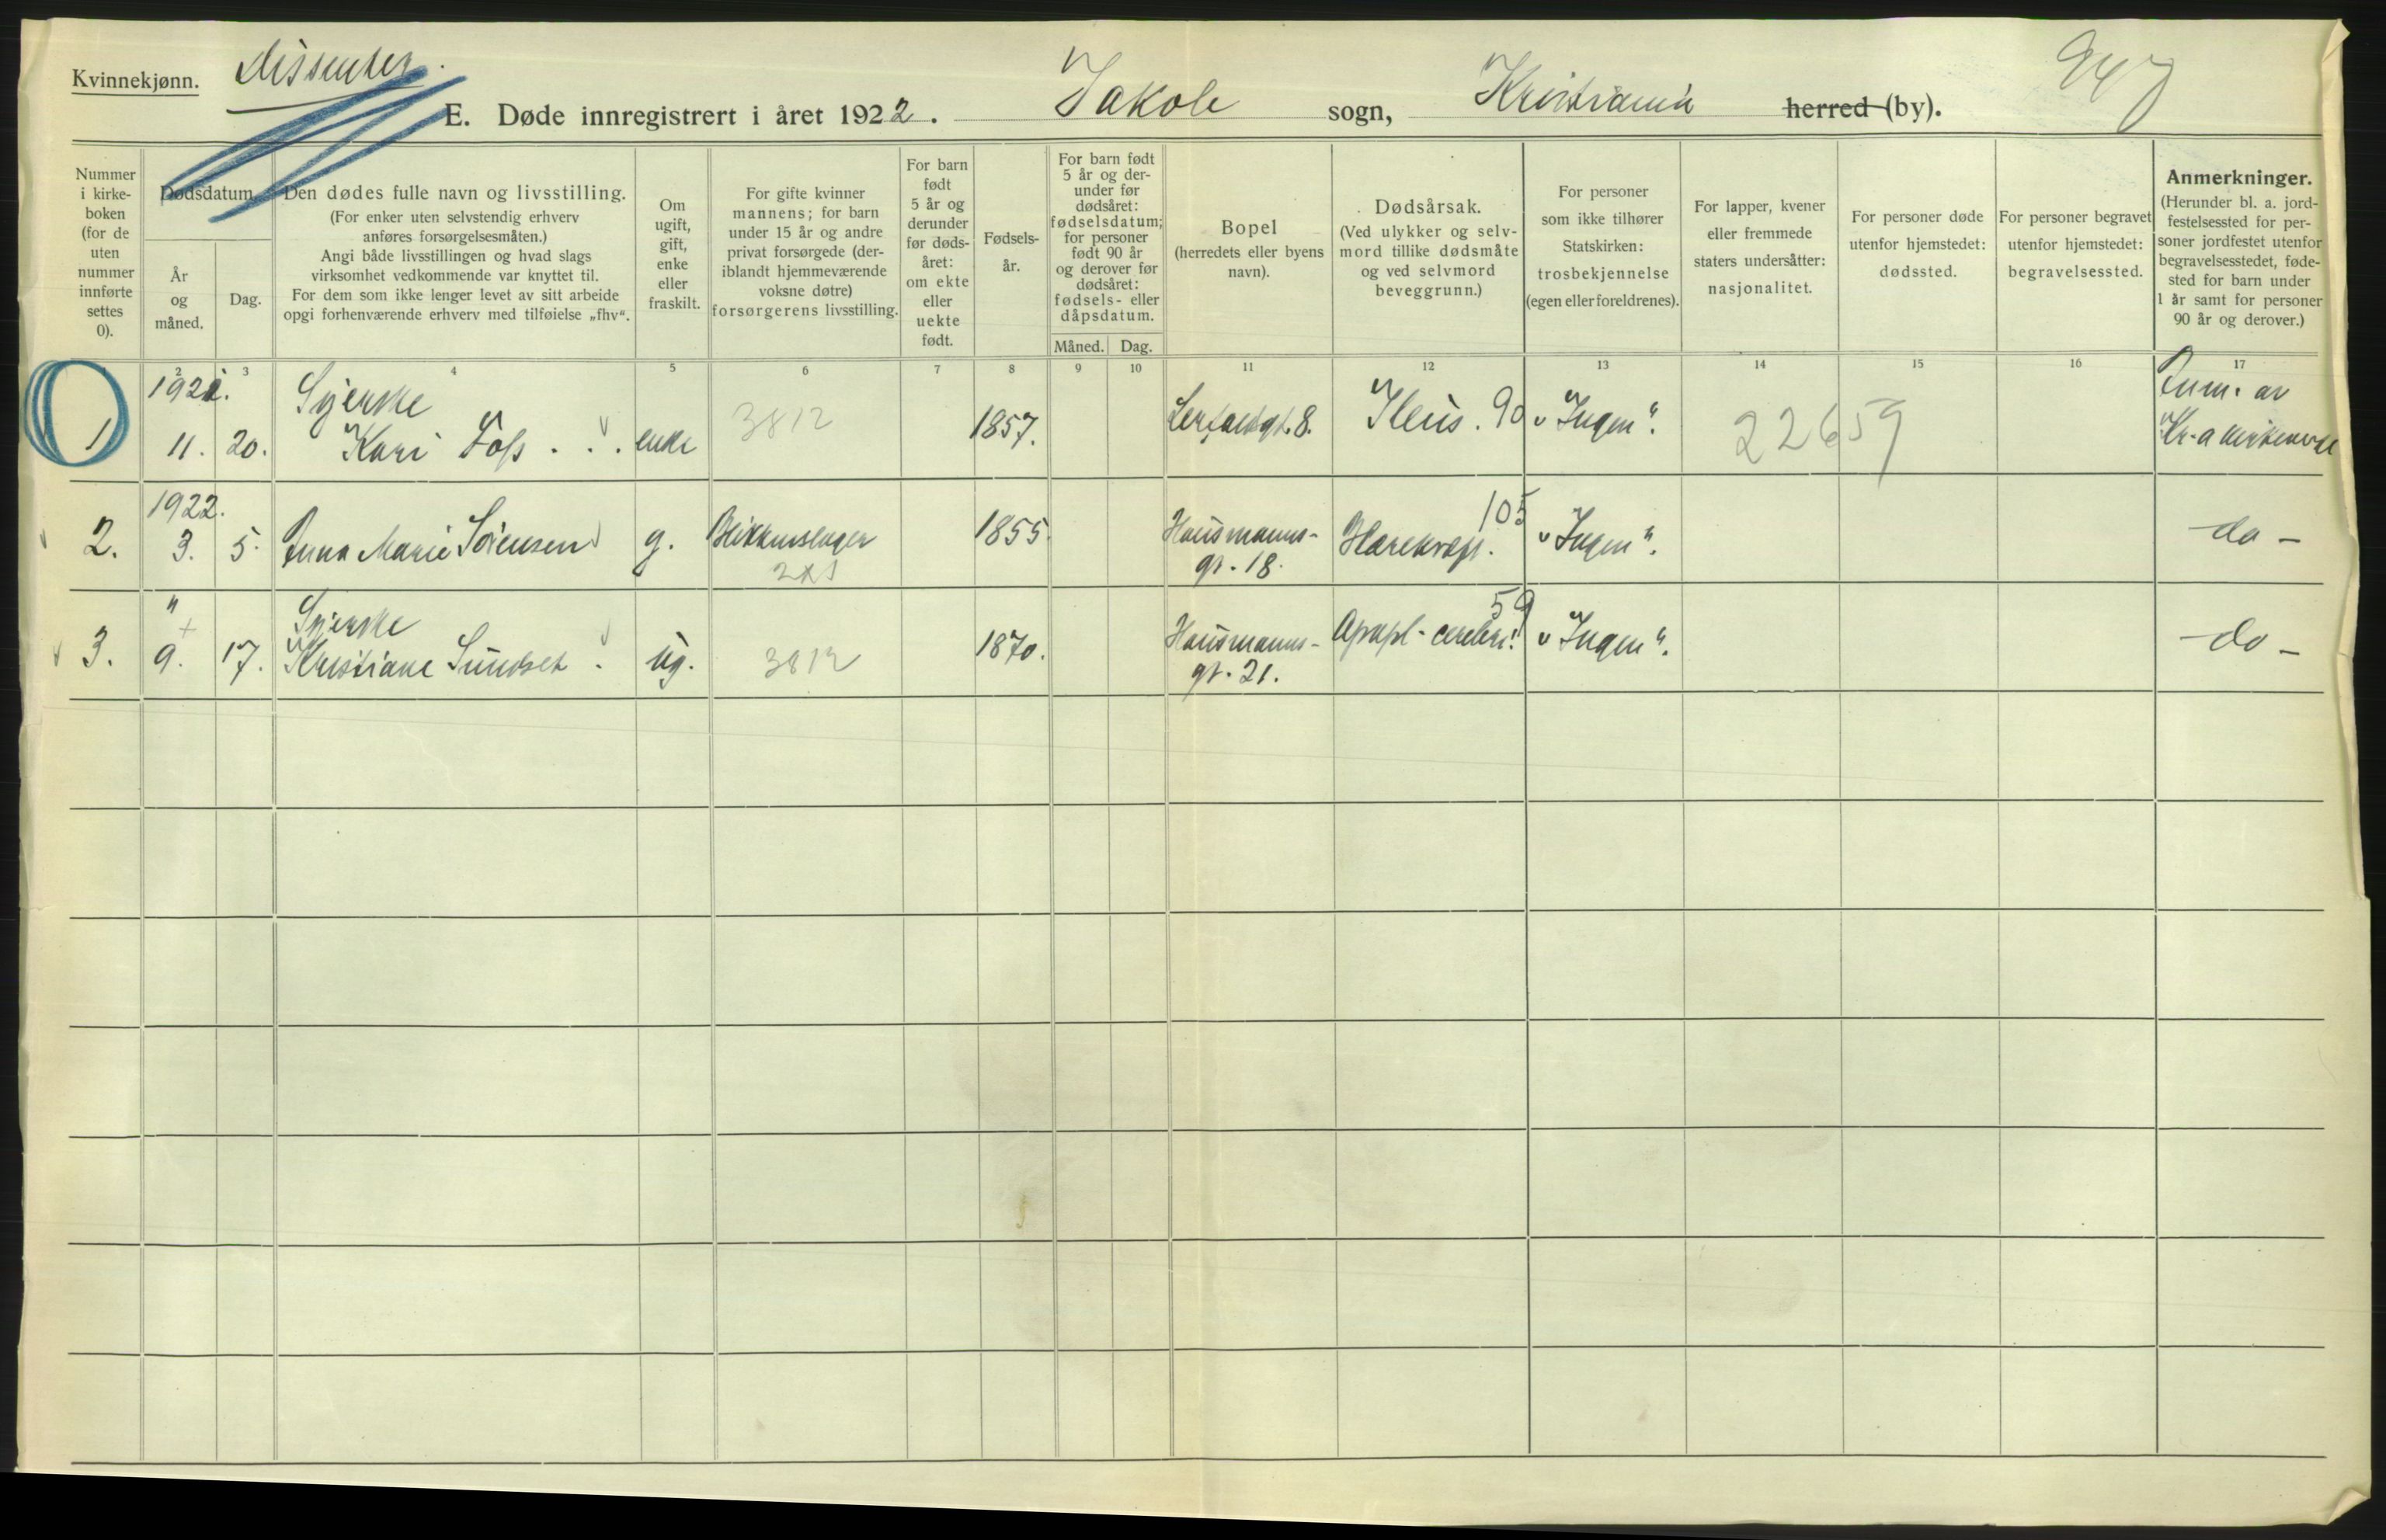 Kvinnekjønn.
Dissenter.
E. Døde innregistrert i året 1922.
Jakob sogn, Kristiania herred (by).
947
Nummer
i kirke-
boken
(for de
uten
nummer
innførte
settes
0).
Dødsdatum.
År
og
måned.
Dag.
Den dødes fulle navn og livsstilling.
(For enker uten selvstendig erhverv
anføres forsørgelsesmåten.)
Angi både livsstillingen og hvad slags
virksomhet vedkommende var knyttet til.
For dem som ikke lenger levet av sitt arbeide
opgi forhenværende erhverv med tilføielse „fhv“.
Om
ugift,
gift,
enke
eller
fraskilt.
For gifte kvinner
mannens; for barn
under 15 år og andre
privat forsørgede (der-
iblandt hjemmeværende
voksne døtre)
forsørgerens livsstilling.
For barn
født
5 år og
derunder
før døds-
året:
om ekte
eller
uekte
født.
Fødsels-
år.
For barn født
5 år og der-
under før
dødsåret:
fødselsdatum;
for personer
født 90 år
og derover før
dødsåret:
fødsels- eller
dåpsdatum.
Måned. Dag.
Bopel
(herredets eller byens
navn).
Dødsårsak.
(Ved ulykker og selv-
mord tillike dødsmåte
og ved selvmord
beveggrunn.)
For personer
som ikke tilhører
Statskirken:
trosbekjennelse
(egen eller foreldrenes).
For lapper, kvener
eller fremmede
staters undersåtter:
nasjonalitet.
For personer døde
utenfor hjemstedet:
dødssted.
For personer begravet
utenfor hjemstedet:
begravelsessted.
Anmerkninger.
(Herunder bl. a. jord-
festelsessted for per-
soner jordfestet utenfor
begravelsesstedet, føde-
sted for barn under
1 år samt for personer
90 år og derover.)
1 2 3 4 5 6 7 8 9 10 11 12 13 14 15 16 17
1921. Syerske
1 11. 20. Kari Foss enke 3812 1857. gt. 8. Ileus. 90 „Ingen“. 22659
av
Kr.a
1922.
2. 3. 5. Anna Marie Sørensen g. Blikkenslager 1855 Hausmanns- 105 „Ingen“. - do -
gt. 18.
" Syerske
3. 9. 17. Kristiane Sundset ug. 3812 1870. Hausmanns- Apopl. cerebri. 59 „Ingen“. - do -
gt. 21.